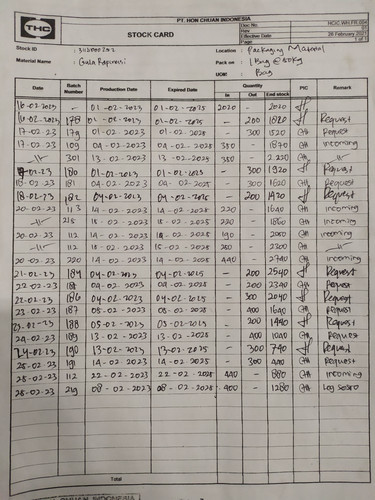 THC
PT. HON CHUAN INDONESIA
STOCK CARD
Doc No HCIC.WH.FR.004
Rev
Effective Date 26 February 2021
Page 1 of 1
Stock ID :
Location : Packaging Material
Material Name : Gula Rapinasi
Pack on : 1 Bag @ 50kg
UOM : Bag
Date Batch Number Production Date Expired Date Quantity PIC Remark
In Out End stock
16-02-2023 - 01-02-2023 01-02-2025 2020 - 2020
16-02-2023 178 01-02-2023 01-02-2025 - 200 1820 Request
17-02-23 179 01-02-2023 01-02-2025 - 300 1520 Request
17-02-23 109 04-02-2023 04-02-2025 350 - 1870 incoming
301 13-02-2023 13-02-2025 350 - 2.220
180 01-02-2023 01-02-2025 - 300 1920 Request
18-02-23 181 04-02-2023 04-02-2025 - 300 1620 Request
18-02-23 182 04-02-2023 04-02-2025 - 200 1420 Request
20-02-23 113 14-02-2023 14-02-2025 220 - 1640 incoming
218 220 - 1860 incoming
20-02-23 112 14-02-2023 14-02-2025 190 - 2050 incoming
112 - 2300
20-02-23 220 14-02-2023 14-02-2025 440 - 2740 incoming
21-02-23 184 04-02-2023 04-02-2025 200 2540 Request
22-02-23 04-02-2023 04-02-2025 - 200 2340 Request
22-02-23 186 04-02-2023 04-02-2025 - 300 2040 Request
23-02-23 187 05-02-2023 05-02-2025 - 400 1640 Request
23-02-23 188 05-02-2023 05-02-2025 - 200 1440 Request
24-02-23 189 13-02-2023 13-02-2025 - 400 1040 Request
24-02-23 190 13-02-2023 13-02-2025 - 300 740 Request
25-02-23 191 14-02-2023 14-02-2025 - 300 440 Request
25-02-23 112 22-02-2023 22-02-2025 440 - 880 incoming
25-02-23 219 08-02-2023 08-02-2025 400 - 1280
Total